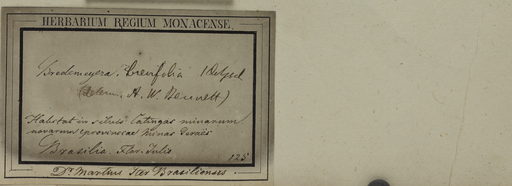 HERBARIUM REGIUM MONACENSE.
Bredemeyera brevifolia
(determ. A. W. Bennett)
Habitat in silvis Catingas minarum
novarum provinciae Minas Geraës
Brasilia. Flor. Julio. 125
Dr. Martius Iter Brasiliense